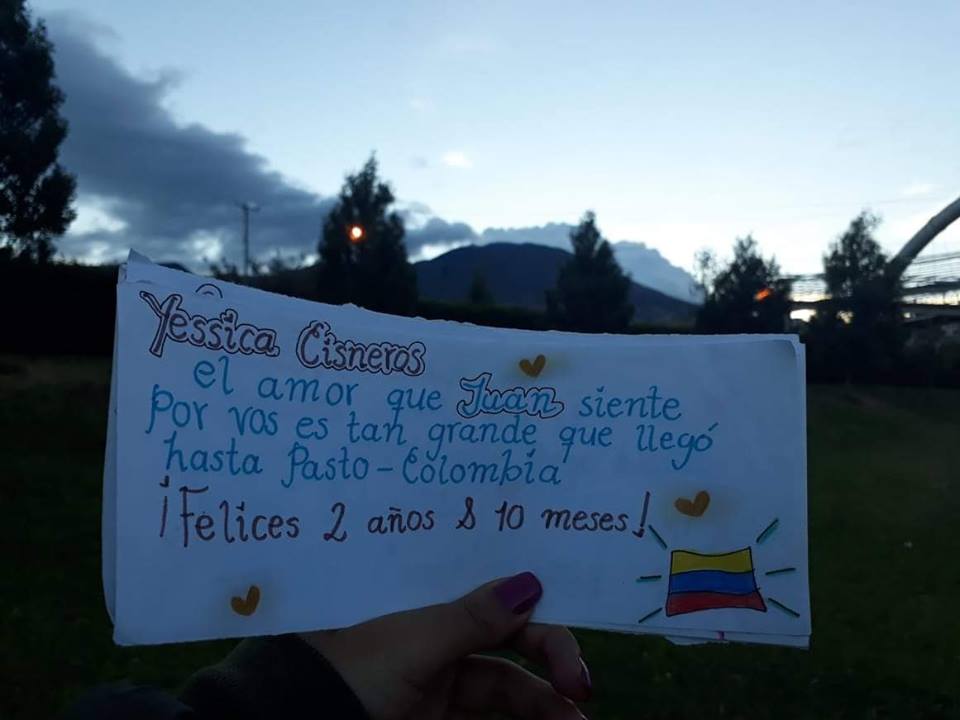 Yessica Cisneros
el amor que Juan siente
por vos es tan grande que llegó
hasta Pasto-Colombia
¡Felices 2 años & 10 meses!